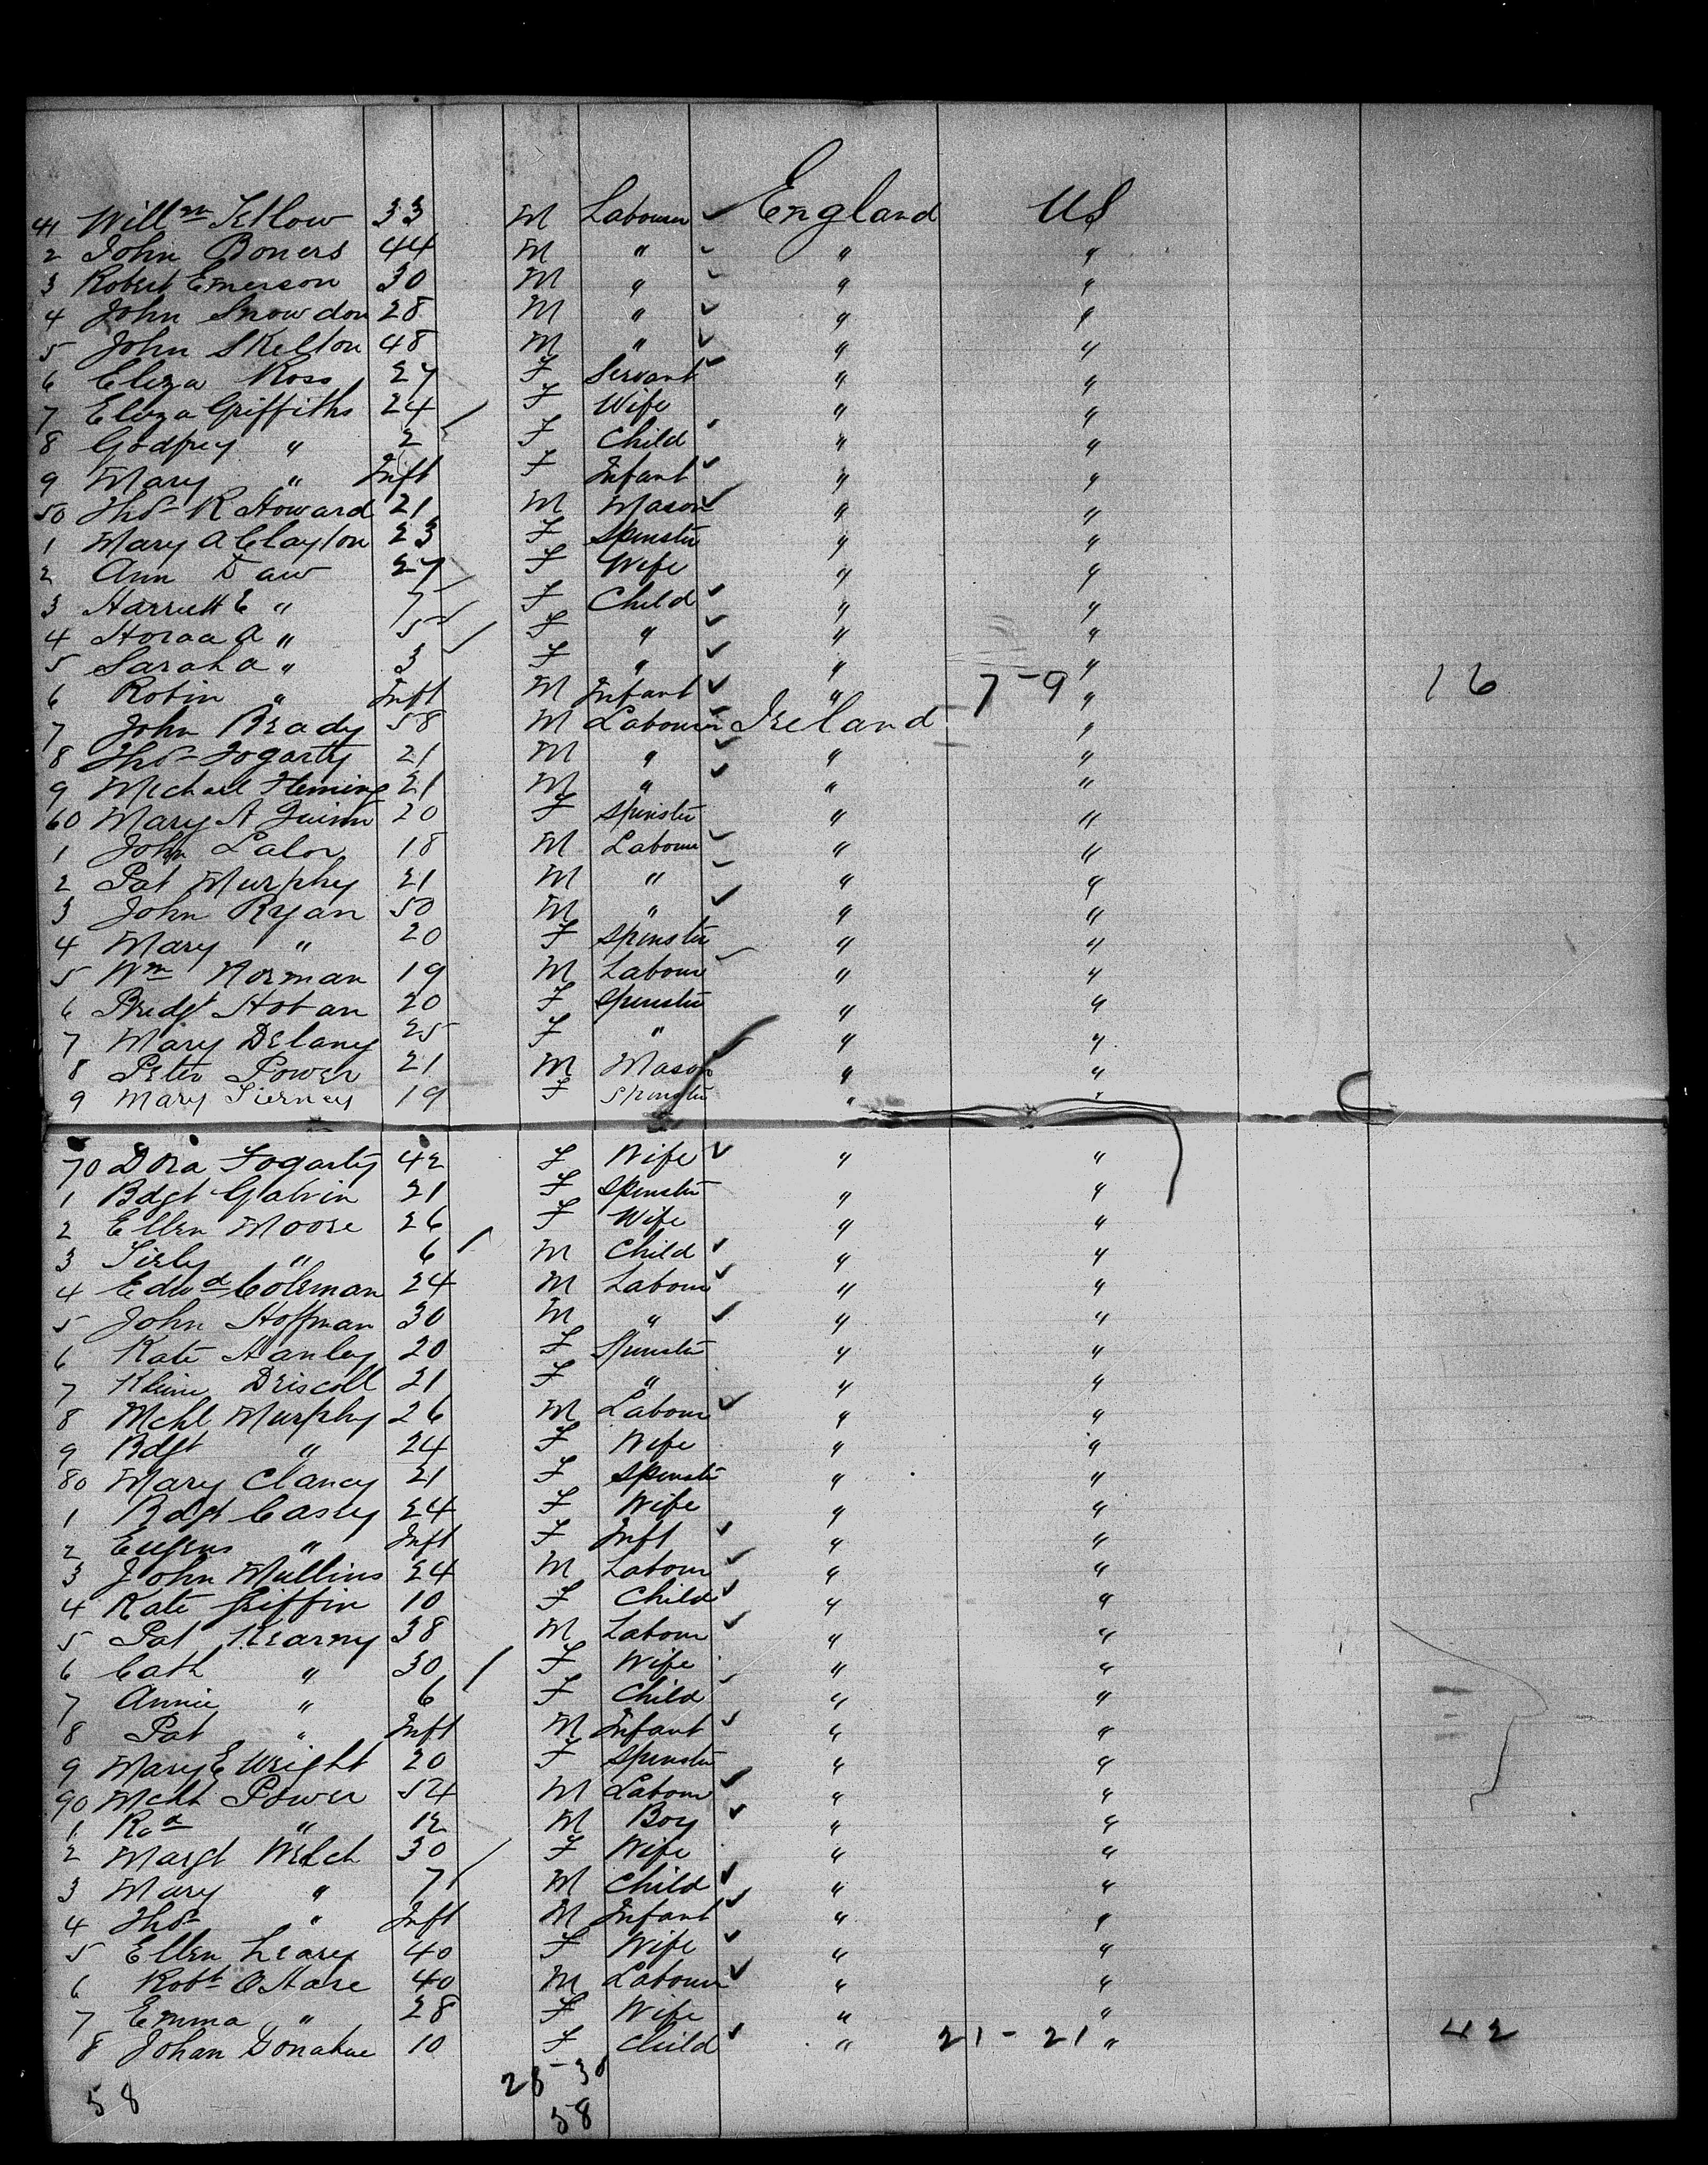 41 Willm Tetlow 33 M Labourer ✓ England US
2 John Boners 44 M " " "
3 Robert Emerson 30 M " " "
4 John Snowdon 28 M " ✓ " "
5 John Skelton 48 M " ✓ " "
6 Eliza Ross 27 F Servant ✓ " "
7 Eliza Griffiths 24 F Wife " "
8 Godfrey " 2 F Child " "
9 Mary " Inft F Infant ✓ " "
50 Thos R Howard 21 M Mason ✓ " "
1 Mary A Clayton 23 F Spinster " "
2 Ann Daw 27 F Wife " "
3 Harriett E " 7 F Child ✓ " "
4 Horaa A " 5 F " ✓ " "
5 Sarah A " 3 F " ✓ " "
6 Robin " Inft M Infant ✓ " 7-9 " 16
7 John Brady 58 M Labourer Ireland "
8 Thos Fogarty 21 M " ✓ " "
9 Michael Fleming 21 M " ✓ " "
60 Mary A Quinn 20 F Spinster " "
1 John Lalor 18 M Labour ✓ " "
2 Pat Murphy 21 M " " "
3 John Ryan 50 M " ✓ " "
4 Mary " 20 F Spinster " "
5 Wm Norman 19 M Labour ✓ " "
6 Bridgt Hoban 20 F Spinster " "
7 Mary Delany 25 F " " "
8 Peter Power 21 M Mason ✓ " "
9 Mary Tierney 19 F Spinster " "
70 Dora Fogarty 42 F Wife ✓ " "
1 Bdgt Galvin 21 F Spinster " "
2 Ellen Moore 26 F Wife " "
3 " 6 M Child ✓ " "
4 Edwd Coleman 24 M Labour ✓ " "
5 John Hoffman 30 M " ✓ " "
6 Kate Hanley 20 F Spinster " "
7 Driscoll 21 F " " "
8 Mchl Murphy 26 M Labour ✓ " "
9 Bdgt " 24 F Wife " "
80 Mary Clancy 21 F Spinster " "
1 Bdgt Casey 24 F Wife " "
2 Eugens " Inft F Inft ✓ " "
3 John Mullins 24 M Labour ✓ " "
4 Kate Griffin 10 F Child ✓ " "
5 Pat Kearny 38 M Labour ✓ " "
6 Cath " 30 F Wife " "
7 Annie " 6 F Child ✓ " "
8 Pat " Inft M Infant ✓ " "
9 Mary E Wright 20 F Spinster " "
90 Mchl Power 54 M Labour ✓ " "
1 Rod " 12 M Boy ✓ " "
2 Margt Welch 30 F Wife " "
3 Mary " 7 M Child ✓ " "
4 Thos " Inft M Infant ✓ " "
5 Ellen Leary 40 F Wife ✓ " "
6 Robt O Hare 40 M Labourer ✓ " "
7 Emma " 28 F Wife " "
8 Johan Donahue 10 F Child ✓ " 21-21 " 42
58 28-30
58